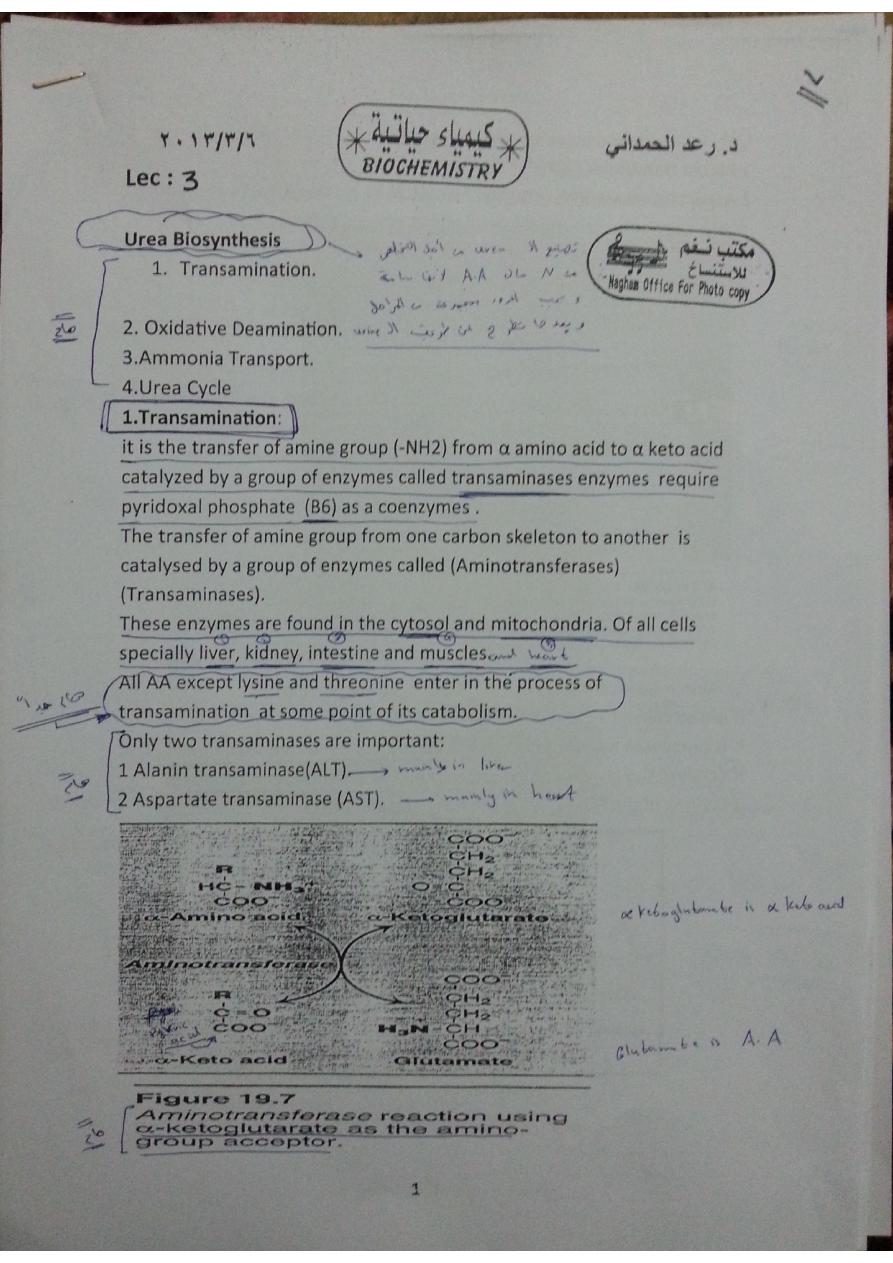 ٢٠١٣/٣/٦
كيمياء حياتية
BIOCHEMISTRY
د. رعد الحمداني
Lec : 3
Urea Biosynthesis
مكتب نغم
للاستنساخ
Nagham Office For Photo copy
1. Transamination.
2. Oxidative Deamination.
3.Ammonia Transport.
4.Urea Cycle
1.Transamination:
it is the transfer of amine group (-NH2) from α amino acid to α keto acid
catalyzed by a group of enzymes called transaminases enzymes require
pyridoxal phosphate (B6) as a coenzymes .
The transfer of amine group from one carbon skeleton to another is
catalysed by a group of enzymes called (Aminotransferases)
(Transaminases).
These enzymes are found in the cytosol and mitochondria. Of all cells
specially liver, kidney, intestine and muscles and heart
All AA except lysine and threonine enter in the process of
transamination at some point of its catabolism.
Only two transaminases are important:
1 Alanin transaminase(ALT). → mainly in liver
2 Aspartate transaminase (AST). → mainly in heart
R
HC – NH3+
COO-
α-Amino acid
COO-
CH2
CH2
O=C
COO-
α-Ketoglutarate
α ketoglutarate is α keto acid
Aminotransferase
R
C=O
COO-
α-Keto acid
COO-
CH2
CH2
H3N-CH
COO-
Glutamate
Glutamate is A.A
Figure 19.7
Aminotransferase reaction using
α-ketoglutarate as the amino-
group acceptor.
1